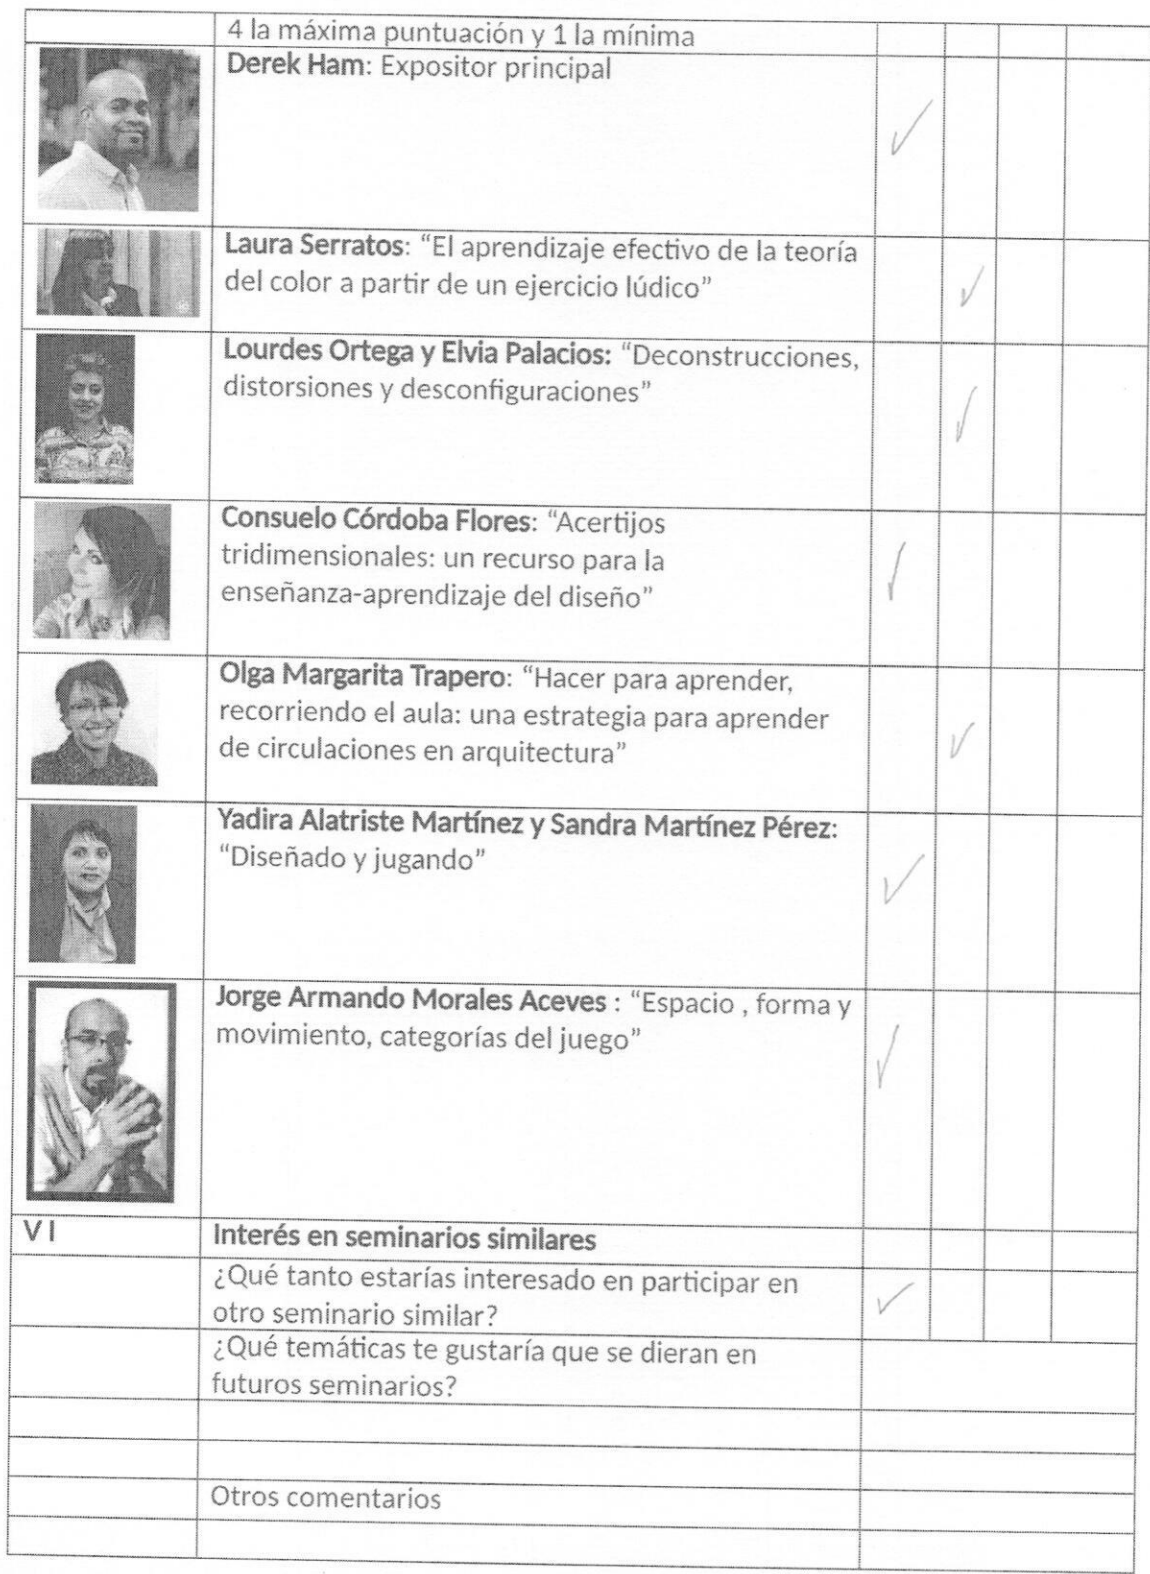 4 la máxima puntuación y 1 la mínima
Derek Ham: Expositor principal
✓
Laura Serratos: “El aprendizaje efectivo de la teoría
del color a partir de un ejercicio lúdico”
✓
Lourdes Ortega y Elvia Palacios: “Deconstrucciones,
distorsiones y desconfiguraciones”
✓
Consuelo Córdoba Flores: “Acertijos
tridimensionales: un recurso para la
enseñanza-aprendizaje del diseño”
✓
Olga Margarita Trapero: “Hacer para aprender,
recorriendo el aula: una estrategia para aprender
de circulaciones en arquitectura”
✓
Yadira Alatriste Martínez y Sandra Martínez Pérez:
“Diseñado y jugando”
✓
Jorge Armando Morales Aceves : “Espacio , forma y
movimiento, categorías del juego”
✓
V I Interés en seminarios similares
¿Qué tanto estarías interesado en participar en
otro seminario similar?
✓
¿Qué temáticas te gustaría que se dieran en
futuros seminarios?
Otros comentarios